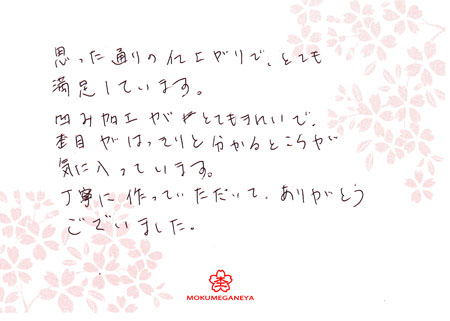 思った通りの仕上がりで、とても
満足しています。
凹み加工がとてもきれいで、
杢目がはっきりと分かるところが
気に入っています。
丁寧に作っていただいて、ありがとう
ございました。
MOKUMEGANEYA